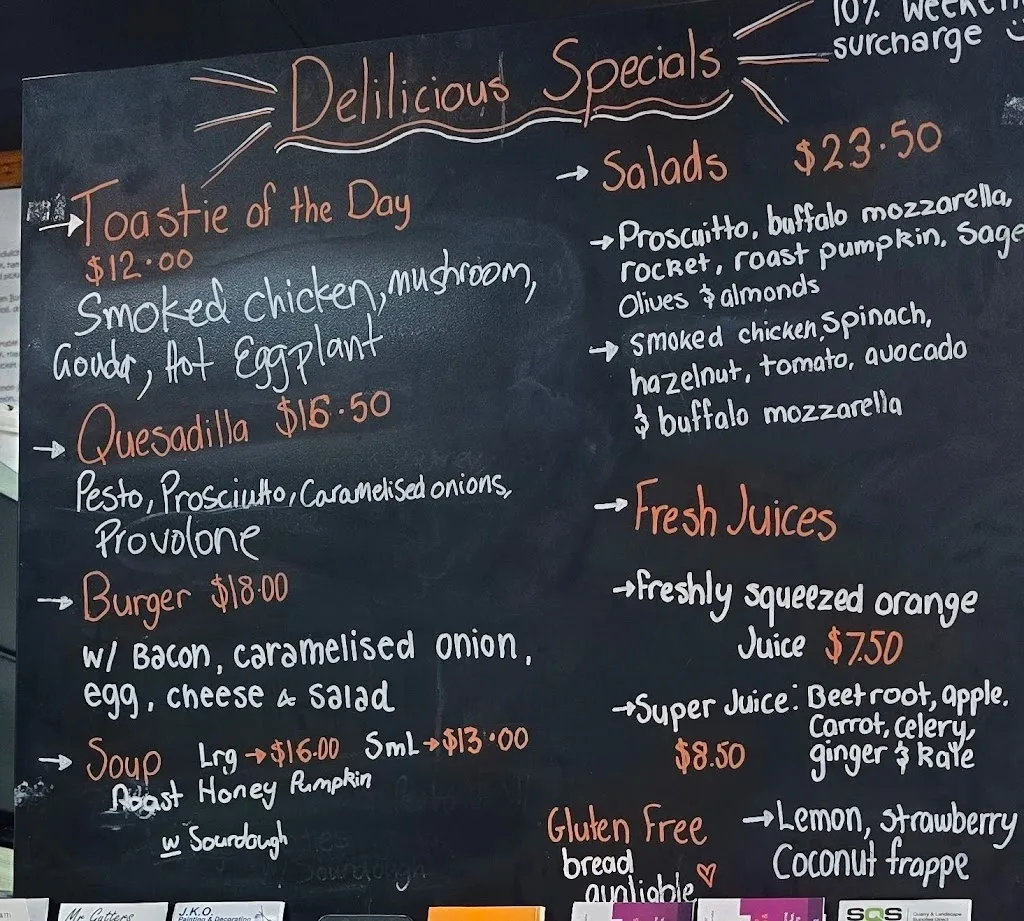 10% weeken
surcharge
Delilicious Specials
Toastie of the Day
$12.00
Smoked chicken, mushroom,
Gouda, Hot Eggplant
Quesadilla $16.50
Pesto, Prosciutto, Caramelised onions,
Provolone
Burger $18.00
w/ Bacon, caramelised onion,
egg, cheese & salad
Soup Lrg → $16.00 Sml → $13.00
Roast Honey Pumpkin
w Sourdough
Salads $23.50
Proscuitto, buffalo mozzarella,
rocket, roast pumpkin, Sage
Olives & almonds
smoked chicken, spinach,
hazelnut, tomato, avocado
& buffalo mozzarella
Fresh Juices
Freshly squeezed orange
Juice $7.50
Super Juice: Beetroot, apple,
Carrot, celery,
$8.50 ginger & kale
Lemon, strawberry
Coconut frappe
Gluten Free
bread
avaliable
Mr Gutters
J.K.O.
Painting & Decorating
SQS